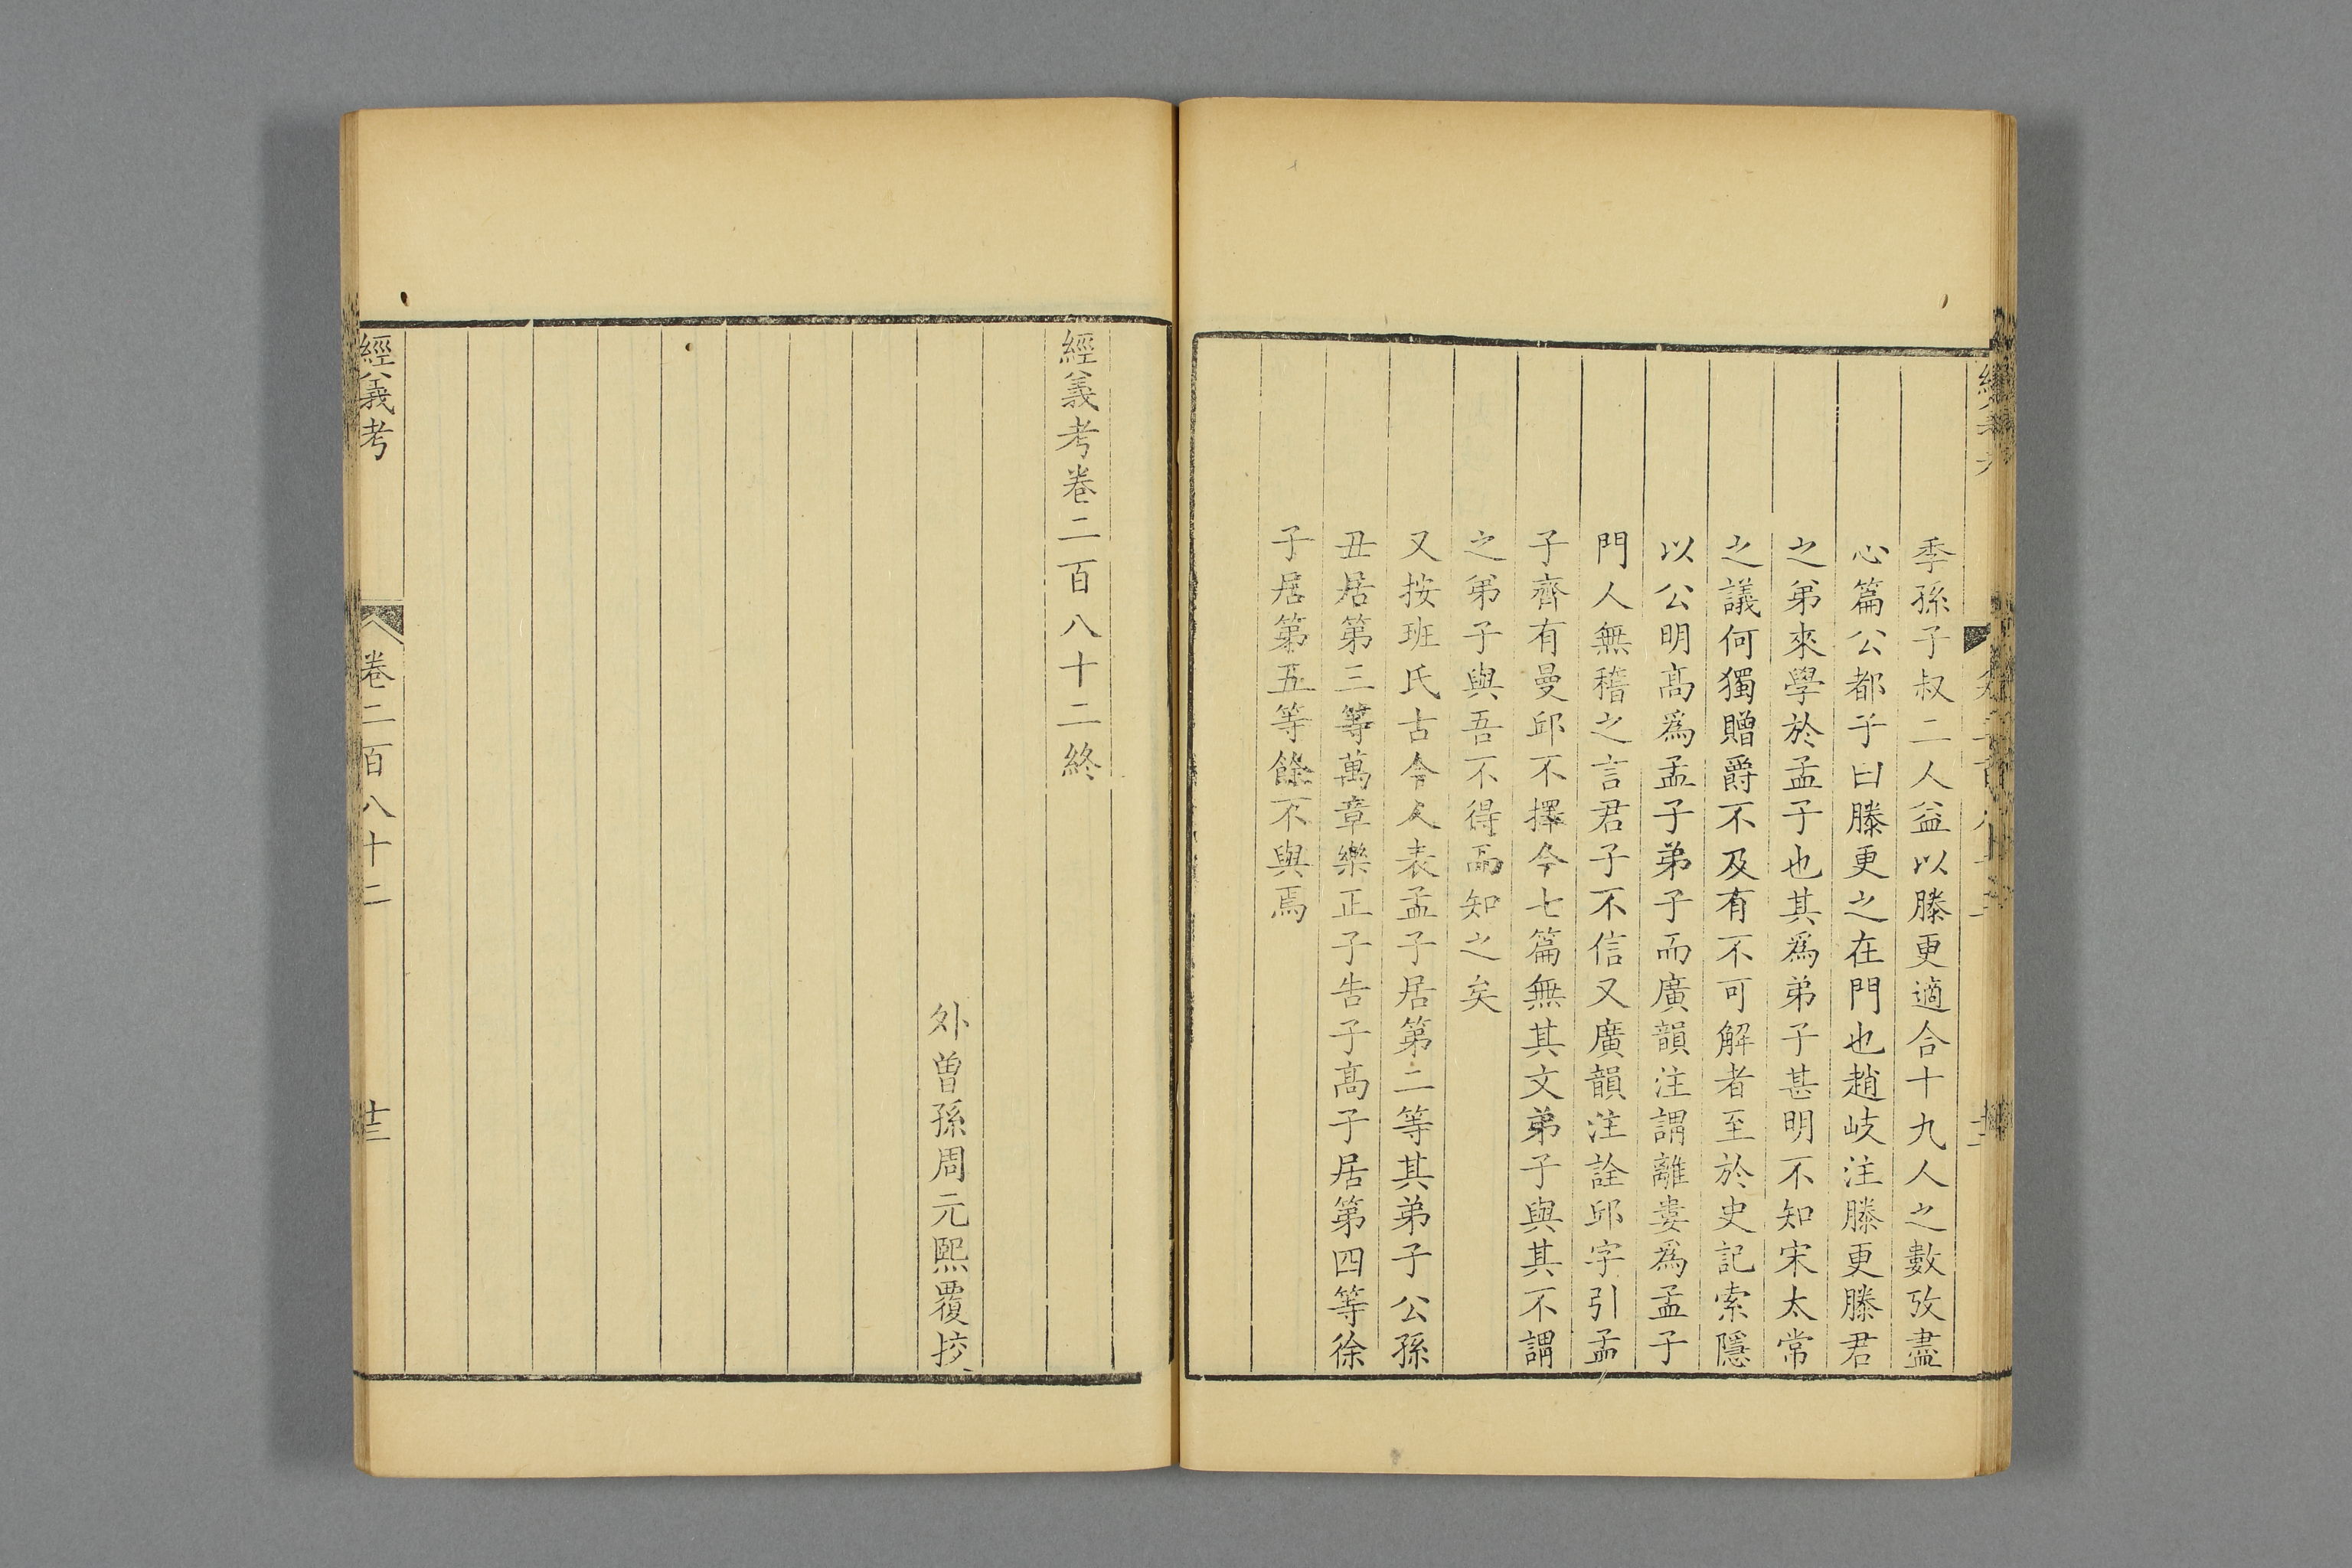 季孫子叔二人益以滕更適合十九人之數攷盡
心篇公都子曰滕更之在門也趙岐注滕更滕君
之弟來學於孟子也其爲弟子甚明不知宋太常
之議何獨贈爵不及有不可解者至於史記索隱
以公明髙爲孟子弟子而廣韻注謂離婁爲孟子
門人無稽之言君子不信又廣韻注詮邱字引孟
子齊有曼邱不擇今七篇無其文弟子與其不謂
之弟子與吾不得而知之矣
又按班氏古今人表孟子居第二等其弟子公孫
丑居第三等萬章樂正子告子髙子居第四等徐
子居第五等餘不與焉
經義考卷二百八十二終
外曾孫周元熙覆挍
經義考
卷二百八十二